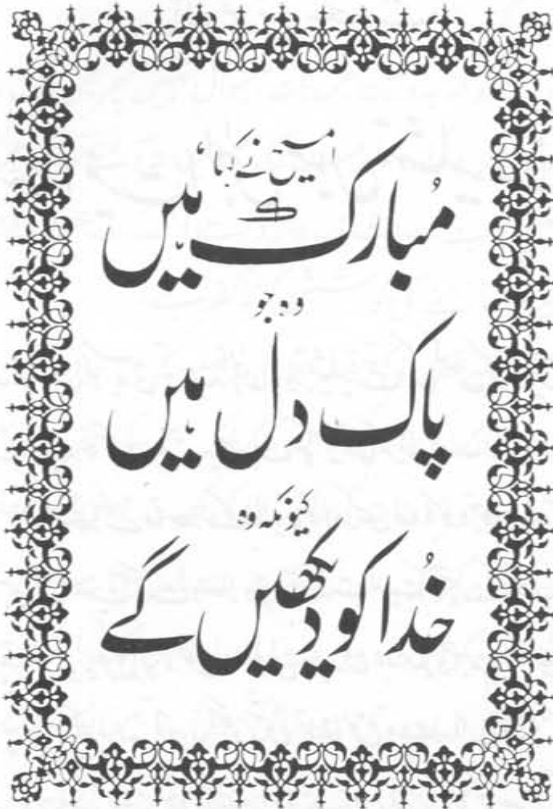 مسیح نے کہا،
مُبارک ہیں
وہ جو
پاک دل ہیں
کیونکہ وہ
خُدا کو دیکھیں گے